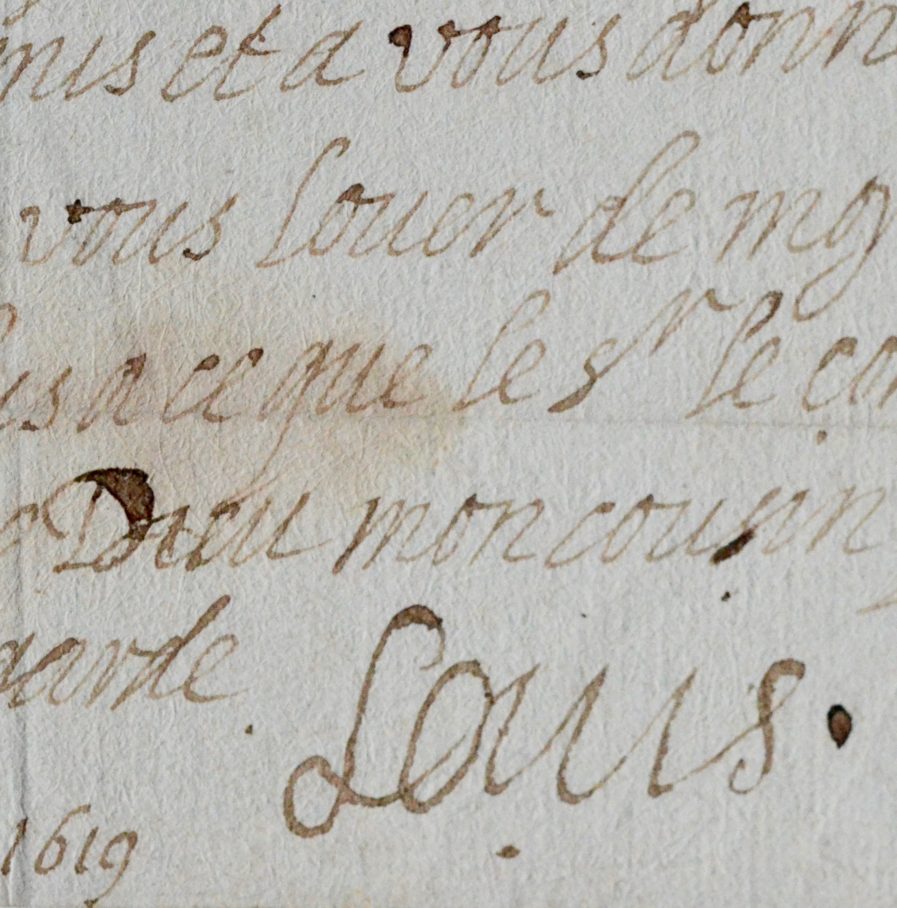 nis et a vous donn
vous louer de mg
us a ce que le sr le con
Dieu mon cousin
garde Louis.
1619